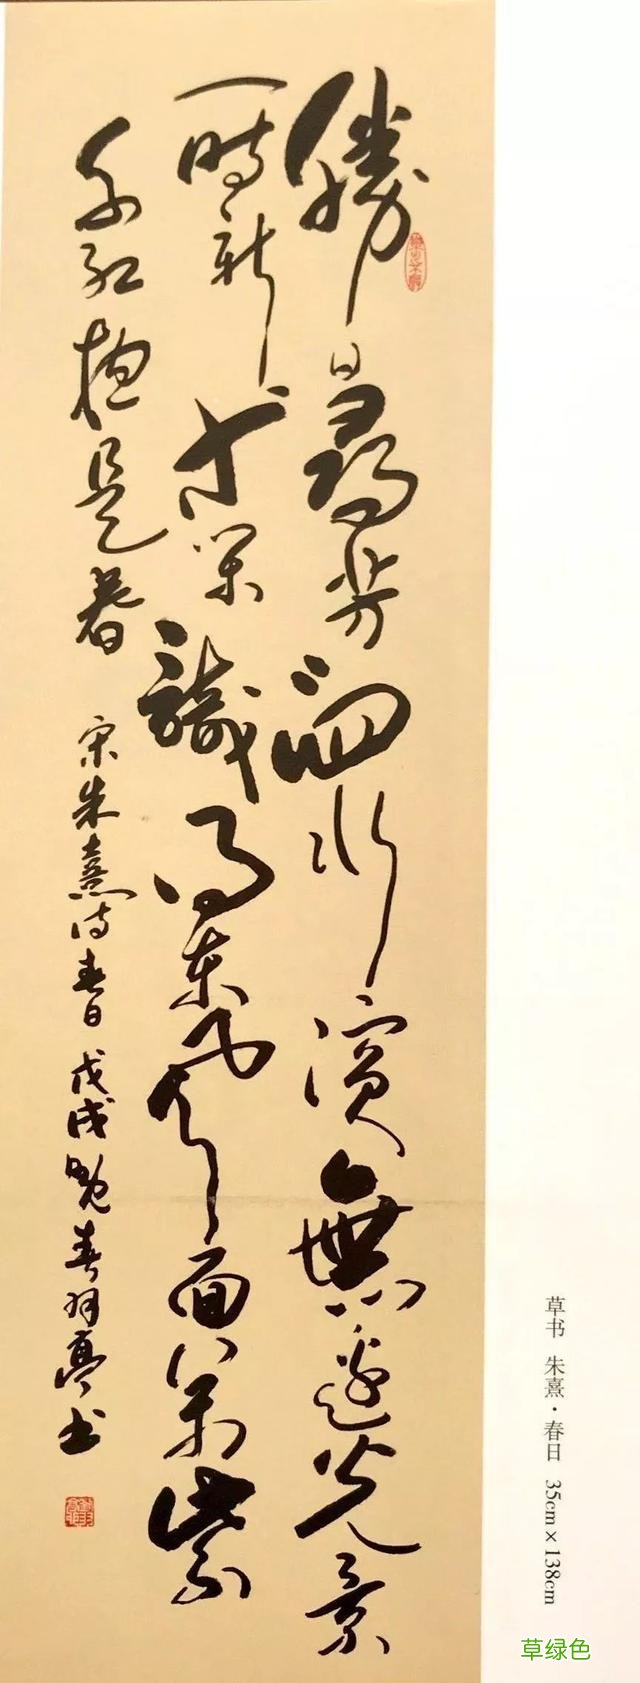 勝日尋芳泗水濱無邊光景
一時新等閑識得東風面萬紫
千紅總是春 宋朱熹詩春日 戊戌晚春羽亭书
草书 朱熹·春日 35cm×138cm
草绿色